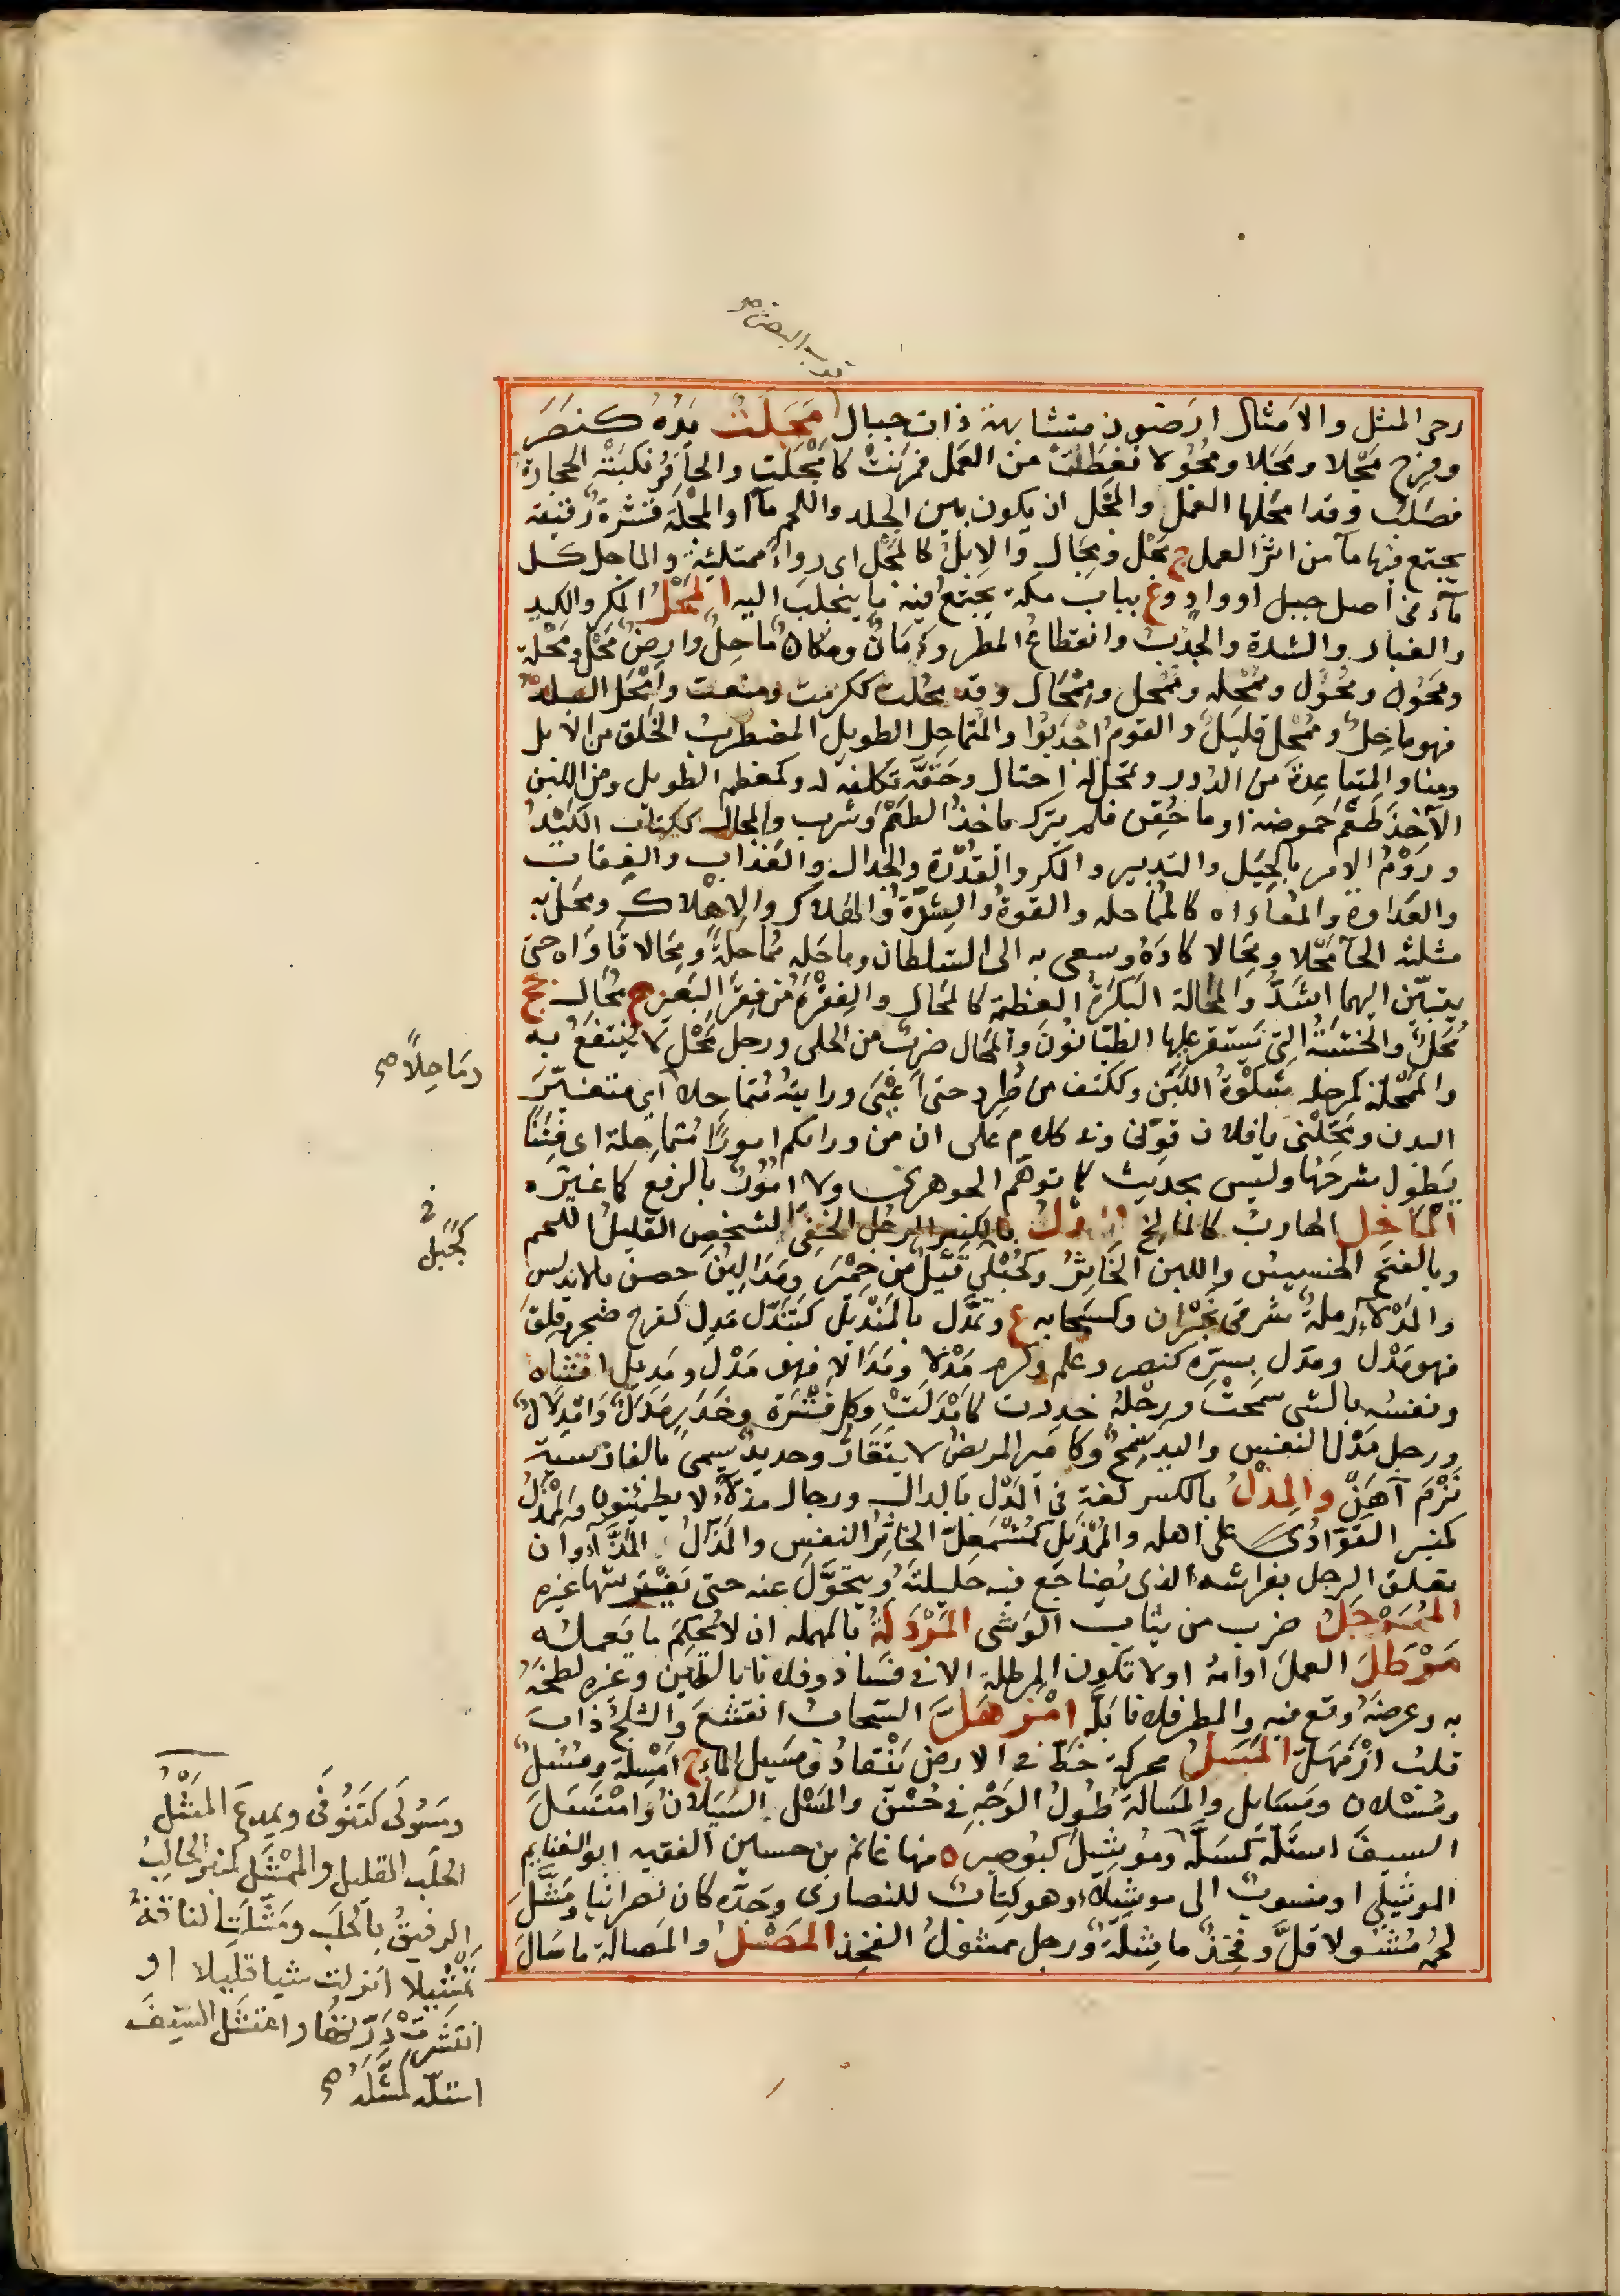 قرب البصرة صح
رحر المثل والامثال ارضون متشابهة ذات جبال مجلت يده كنصر
وفرح مجلا ومجلا ومجولا نفطت من العمل فمرنت كامجلت والحافر نكبته الحجارة
فصلب وقد امجلها العمل والمجل ان يكون بين الجلد واللحم ماء او المجلة قشرة رقيقة
يجتمع فيها ماء من اثر العمل ج مجل ومجال والابل كالمجل اى رواء ممتلئة والماجل كل
ماء في اصل جبل او واد وع بباب مكة يجتمع فيه ما يتحلب اليه المحل المكر والكيد
والغبار والشدة والجدب وانقطاع المطر وزمان ومكان ماحل وارض محل ومحلة
ومحول ومحول وممحلة وممحل وممحال وقد محلت ككرمت ومنعت وامحل البلد
فهو ماحل وممحل قليل والقوم اجدبوا والمتماحل الطويل المضطرب الخلق من الابل
ومنا والمتباعدة من الدور وتمحل له احتال وحقه تكلفه له وكمعظم الطويل ومن اللبن
الآخذ طعم حموضة او ما حقن فلم يترك ياخذ الطعم وشرب والمحال ككتاب الكيد
وروم الامر بالحيل والتدبير والمكر والقدرة والجدال والعذاب والعقاب
والعداوة والمعاداه كالمماحله والقوة والشدة والهلاك والاهلاك ومحل به
مثلثة الحاء محلا ومحالا كاده وسعى به الى السلطان وماحله مماحلة ومحالا قاواه حتى
يتبين ايهما اشد والمحالة البكرة العظمة كالمحال والفقرة من فقر البعير ج محال جج
محل والخشبة التي يستقر عليها الطيانون والمحال ضرب من الحلى ورجل محل لا ينتفع به
والممحلة كمرحله شكوة اللبن وككتف من طرد حتى اعيى ورايته متماحلا اى متغير
البدن ومحلنى يا فلان قونى وفى كلام على ان من ورائكم امورا متماحلة اى فتنا
يطول شرحها وليس بحديث كما توهم الجوهرى ولا امور بالرفع كما غيره
الماخل الهارب كالمالخ المدل بالكسر الرجل الخفى الشخص القليل اللحم
وبالفتح الخسيس واللبن الخاثر وكجبل قيل من حمير ومدالين حصن بالاندلس
والمدلاء رملة شرقى نجران وكسحابه ع وتمدل بالمنديل كتندل مذل كفرح ضجر وقلق
فهو مذل ومذل بسره كنصر وعلم وكرم مذلا ومذالا فهو مذل ومذيل افشاه
ونفسه بالشى سمحت ورجله خدرت كامذلت وكل فترة وخدر مذل وامذلال
ورجل مذل النفس واليد سمح وكامير المريض لا يتقار وحديد يسمى بالفارسية
نرم آهن والمذل بالكسر لغة فى المدل بالدال ورجال مذلاء لا يطمئنون والممذل
كمنبر القواد على اهله والممذئل كمشمعل الخاثر النفس والمذال المذاء وان
يقلق الرجل بفراشه الذى يضاجع فيه حليلته ويتحول عنه حتى يفترشها غيره
الممرجل ضرب من ثياب الوشى المردلة بالمهملة ان لا يحكم ما يعمله
مرطل العمل ادامه او لا تكون المرطلة الا فى فساد وفلانا بالطين وغيره لطخه
به وعرضه وقع فيه والمطر فلانا بله امزهل السحاب انقشع والثلج ذاب
قلب ازمهل المسل محركة خط فى الارض ينقاد ومسيل الماء ج امسلة ومسل
ومسلان ومسايل والمسالة طول الوجه فى حسن والمسل السيلان وامتسل
السيف استله كمسله وموشيل كبوصير ه منها غانم بن حسين الفقيه ابو الغنايم
الموشيلى او منسوب الى موشيلاء وهو كتاب للنصارى وجده كان نصرانيا ومشل
لحمه مشولا قل وفخذ ماشلة ورجل ممشول الفخذ المصل والمصالة ما سال
وماحلا صح
كجبل
ومسولى كتنوفى ويمدع المشل
الحلب القليل والممشل كمنبر الحالب
الرفيق بالحلب ومشلت الناقة
تمشيلا انزلت شيا قليلا او
انتشرت درتها وامتشل السيف
استله كمشله صح